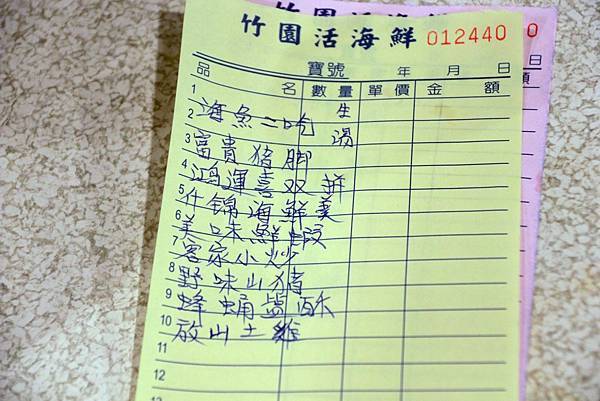 竹園活海鮮
竹園活海鮮 012440 0
寶號 年 月 日 日
品 名 數量 單價 金 額 額
1 生
2 海魚二吃 湯
3 富貴豬腳
4 鸿運喜双拼
5 什锦海鮮羹
6 美味鮮蝦
7 客家小炒
8 野味山猪
9 蜂蛹盐酥
10 放山土雞
11
12
13